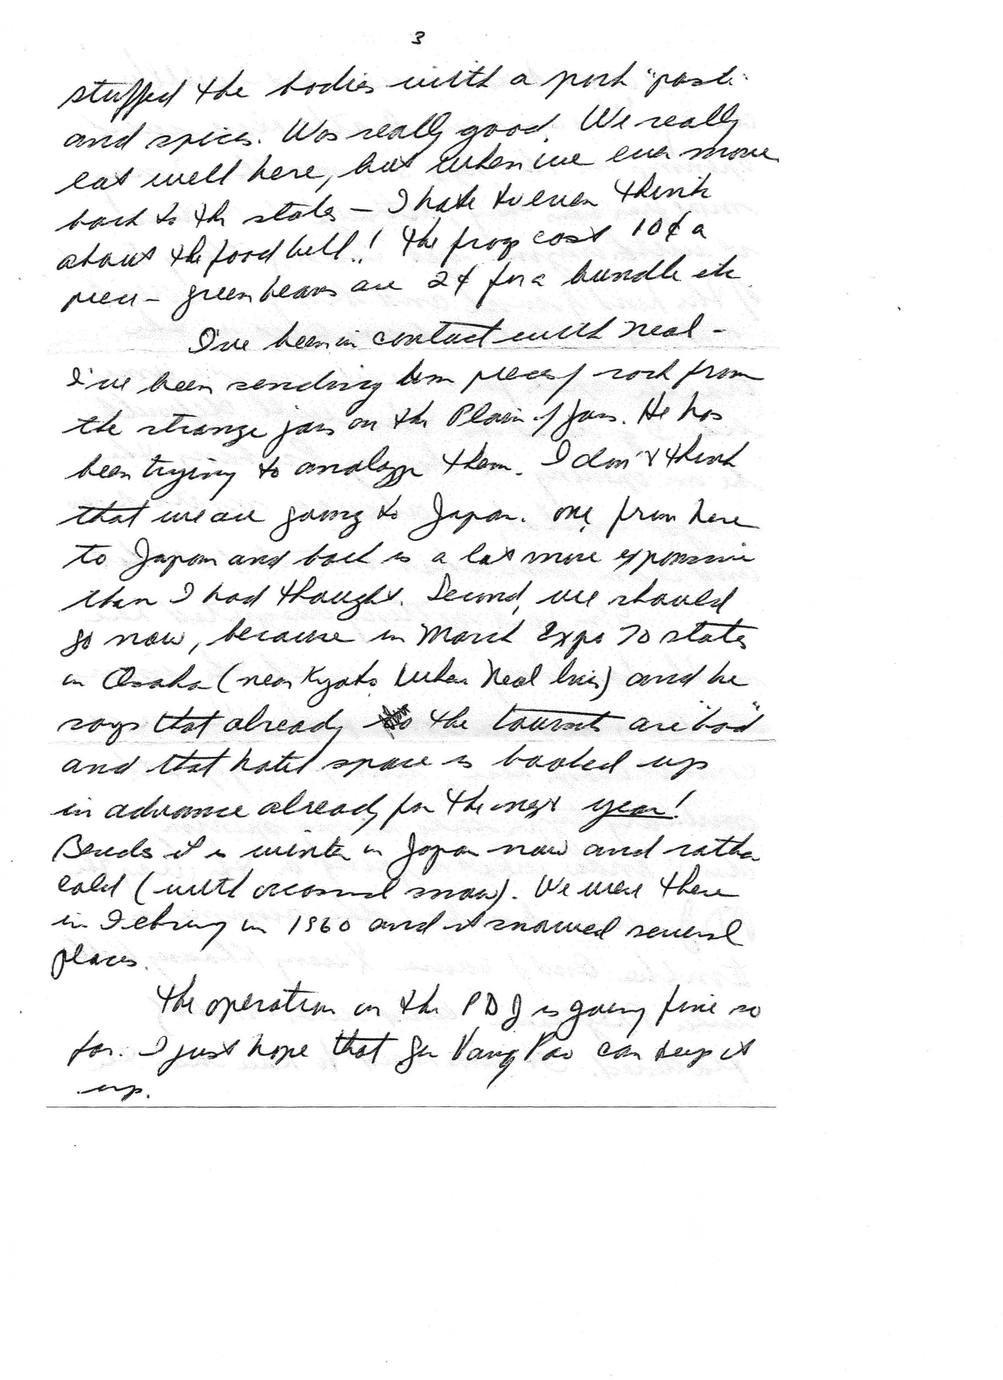 3
stuffed the bodies with a pork "paste"
and spices. Was really good. We really
eat well here, but when we ever move
back to the states — I hate to even think
about the food bill!! The frogs cost 10¢ a
piece — green beans are 2¢ for a bundle etc.
I've been in contact with Neal —
I've been sending him pieces of rock from
the strange jars on the Plain of Jars. He has
been trying to analyze them. I don't think
that we are going to Japan. One, from here
to Japan and back is a lot more expensive
than I had thought. Second, we should
go now, because in March Expo 70 starts
in Osaka (near Kyoto where Neal lives) and he
says that already the tourists are "bad"
and that hotel space is booked up
in advance already for the next year!
Besides it is winter in Japan now and rather
cold (with occasional snow). We were there
in February in 1960 and it snowed several
places.
The operation on the PDJ is going fine so
far. I just hope that Gen Vang Pao can keep it
up.